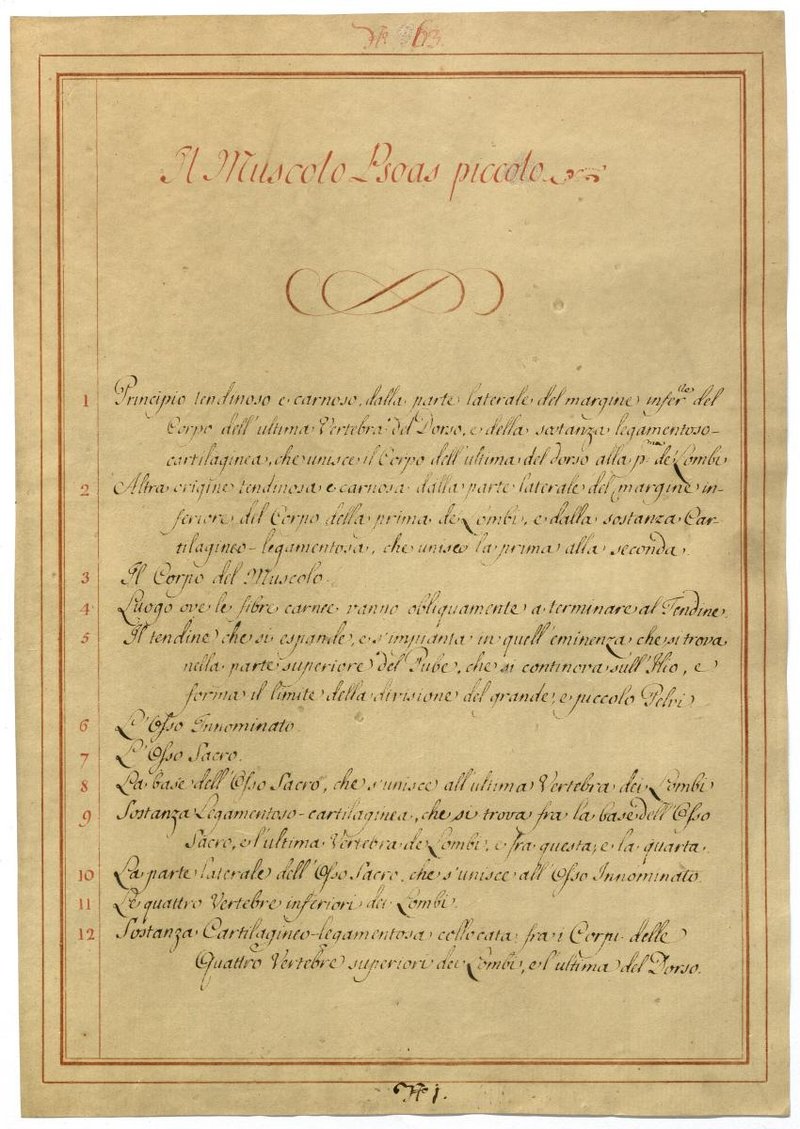 N. 63.
Il Muscolo Psoas piccolo
1 Principio tendinoso e carnoso, dalla parte laterale del margine infer.re del
Corpo dell'ultima Vertebra del Dorso, e della sostanza legamentoso-
cartilaginea, che unisce il Corpo dell'ultima del dorso alla p.ma de Lombi
2 Altra origine tendinosa e carnosa dalla parte laterale del margine in-
feriore del Corpo della prima de Lombi, e dalla sostanza Car-
tilagineo-legamentosa, che unisce la prima alla seconda.
3 Il Corpo del Muscolo.
4 Luogo ove le fibre carnee vanno obliquamente a terminare al Tendine.
5 Il tendine che si espande, e s'impianta in quell'eminenza che si trova
nella parte superiore del Pube, che si continova sull'Ilio, e
forma il limite della divisione del grande, e piccolo Pelvi
6 L'Osso Innominato.
7 L'Osso Sacro.
8 La base dell'Osso Sacro, che s'unisce all'ultima Vertebra dei Lombi
9 Sostanza Legamentoso-cartilaginea, che si trova fra la base dell'Osso
Sacro, e l'ultima Vertebra de Lombi, e fra questa, e la quarta.
10 La parte laterale dell'Osso Sacro, che s'unisce all'Osso Innominato.
11 Le quattro Vertebre inferiori dei Lombi.
12 Sostanza Cartilagineo-legamentosa collocata fra i Corpi delle
Quattro Vertebre superiori dei Lombi, e l'ultima del Dorso.
N 1.